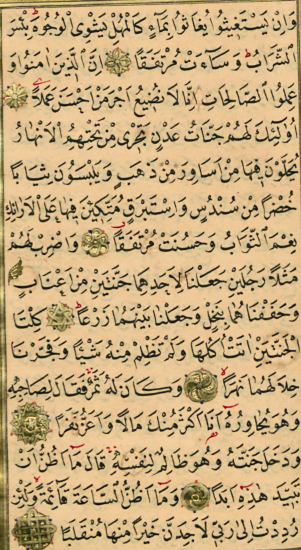 وَاِنْ يَسْتَغٖيثُوا يُغَاثُوا بِمَٓاءٍ كَالْمُهْلِ يَشْوِى الْوُجُوهَ بِئْسَ
الشَّرَابُ وَسَٓاءَتْ مُرْتَفَقًا اِنَّ الَّذٖينَ اٰمَنُوا وَ
عَمِلُوا الصَّالِحَاتِ اِنَّا لَا نُضٖيعُ اَجْرَ مَنْ اَحْسَنَ عَمَلًا
اُولٰٓئِكَ لَهُمْ جَنَّاتُ عَدْنٍ تَجْرٖى مِنْ تَحْتِهِمُ الْاَنْهَارُ
يُحَلَّوْنَ فٖيهَا مِنْ اَسَاوِرَ مِنْ ذَهَبٍ وَيَلْبَسُونَ ثِيَابًا
خُضْرًا مِنْ سُنْدُسٍ وَاِسْتَبْرَقٍ مُتَّكِـٖٔينَ فٖيهَا عَلَى الْاَرَٓائِكِ
نِعْمَ الثَّوَابُ وَحَسُنَتْ مُرْتَفَقًا وَاضْرِبْ لَهُمْ
مَثَلًا رَجُلَيْنِ جَعَلْنَا لِاَحَدِهِمَا جَنَّتَيْنِ مِنْ اَعْنَابٍ
وَحَفَفْنَاهُمَا بِنَخْلٍ وَجَعَلْنَا بَيْنَهُمَا زَرْعًا كِلْتَا
الْجَنَّتَيْنِ اٰتَتْ اُكُلَهَا وَلَمْ تَظْلِمْ مِنْهُ شَيْـًٔا وَفَجَّرْنَا
خِلَالَهُمَا نَهَرًا وَكَانَ لَهُ ثَمَرٌ فَقَالَ لِصَاحِبِهٖ
وَهُوَ يُحَاوِرُهُٓ اَنَا۬ اَكْثَرُ مِنْكَ مَالًا وَاَعَزُّ نَفَرًا
وَدَخَلَ جَنَّتَهُ وَهُوَ ظَالِمٌ لِنَفْسِهٖ قَالَ مَٓا اَظُنُّ اَنْ
تَبٖيدَ هٰذِهٖٓ اَبَدًا وَمَٓا اَظُنُّ السَّاعَةَ قَٓائِمَةً وَلَئِنْ
رُدِدْتُ اِلٰى رَبّٖى لَاَجِدَنَّ خَيْرًا مِنْهَا مُنْقَلَبًا